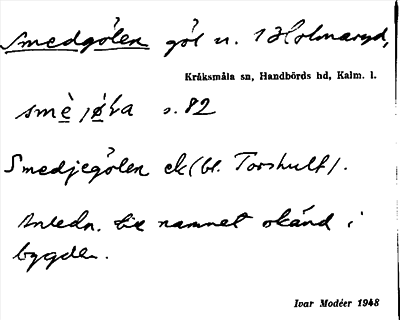 Smedgölen göl n. 1 Holmaryd,
Kråksmåla sn, Handbörds hd, Kalm. l.
smè jø̀la s. 82
Smedjegölen ek (bl. Torshult).
Anledn. till namnet okänd i
bygden.
Ivar Modéer 1948